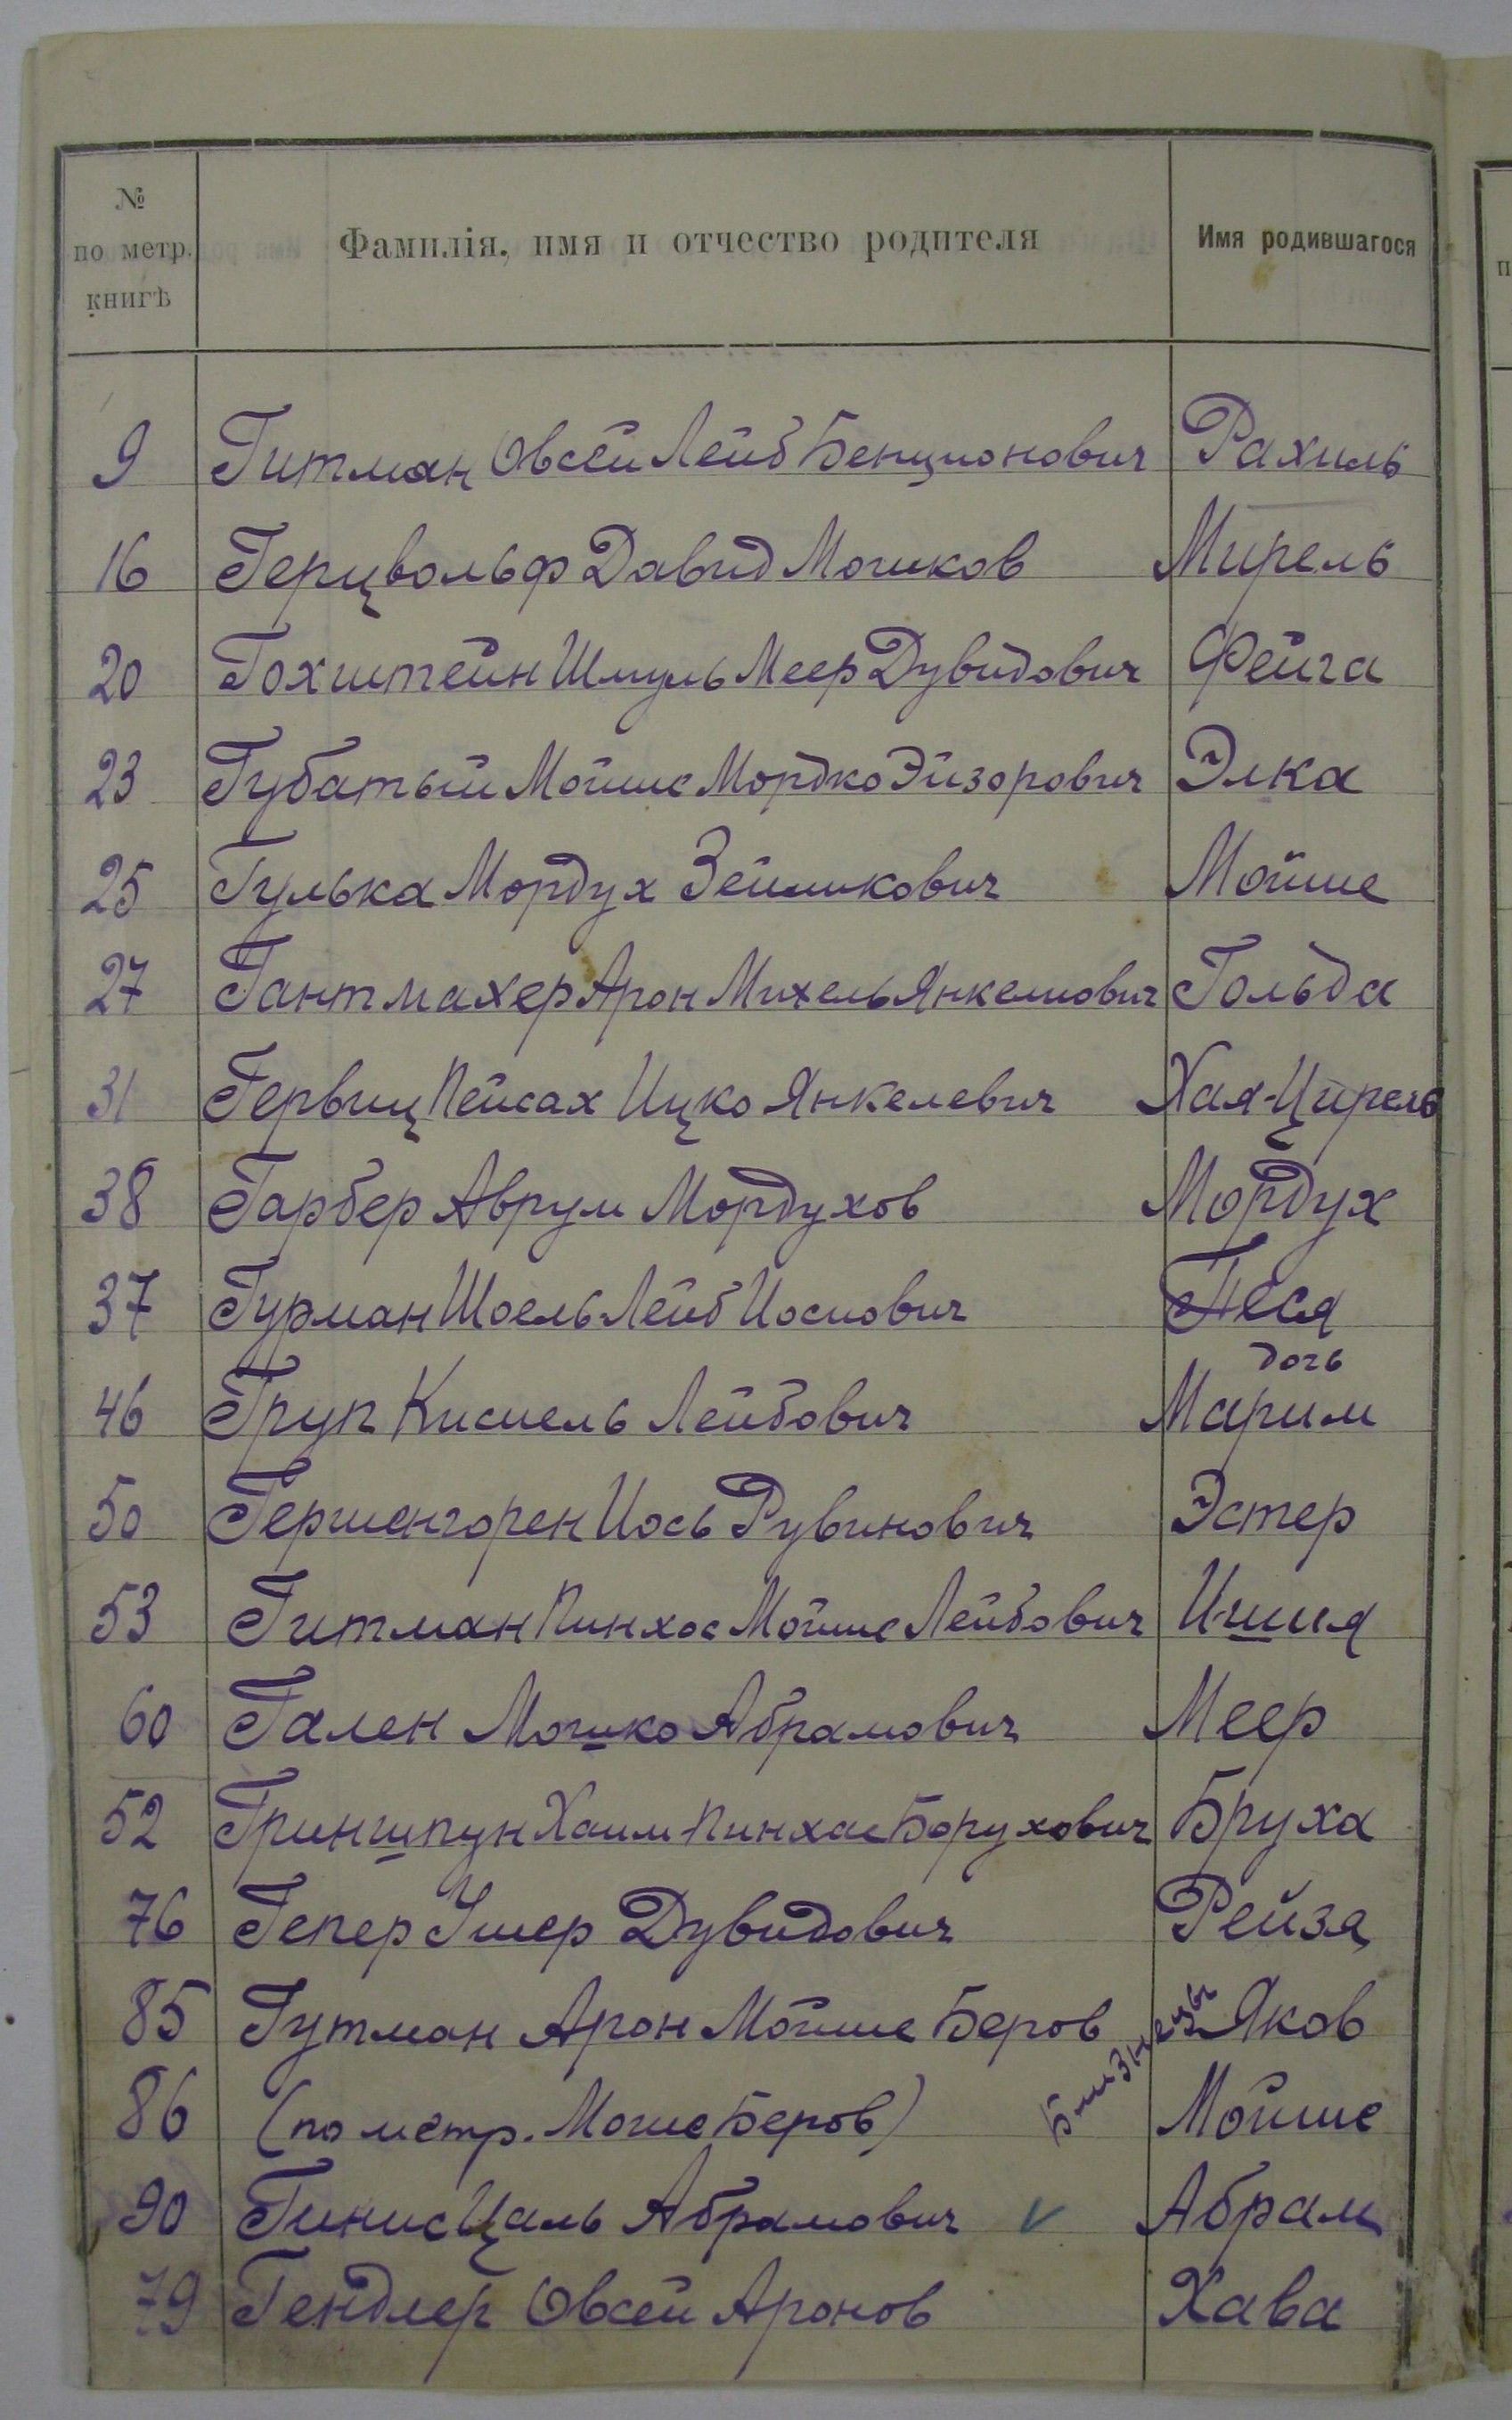 № по метр. книгѣ Фамилія, имя и отчество родителя Имя родившагося
9 Гитман Овсей Лейб Бенционович Рахиль
16 Герцвольф Давид Мошков Мирель
20 Гохштейн Шмуль Меер Дувидович Фейга
23 Губатый Мойше Мордко Эйзорович Элка
25 Гулька Мордух Зейликович Мойше
27 Гантмахер Арон Михель Янкелиович Гольда
31 Гервиц Пейсах Ицко Янкелевич Хая-Цирель
38 Гарбер Аврум Мордухов Мордух
37 Гурман Шоель Лейб Иосиович Песя
дочь
46 Груп Кисиель Лейбович Марим
50 Гершенгорен Иось Рувинович Эстер
53 Гитман Пинхос Мойше Лейбович Ишия
60 Гален Мошко Абрамович Меер
52 Гриншпун Хаим-Пинхас Борухович Бруха
76 Гепер Ушер Дувидович Рейза
85 Гутман Арон Мойше Беров Яков
близнецы
86 (по метр. Моше Беров) Мойше
90 Гинис Цаль Абрамович v Абрам
79 Гендлер Овсей Аронов Хава